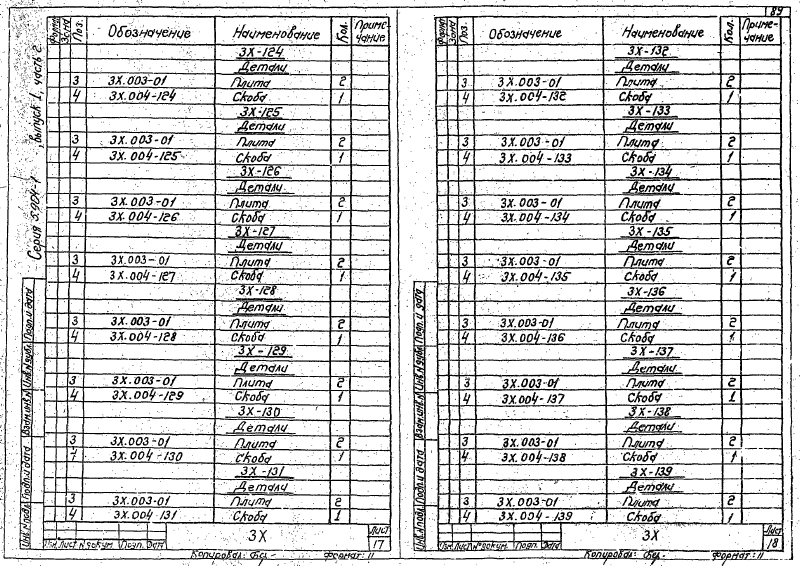 89
Серия 5.904-1 , выпуск 1, часть 2.
Форм. Зона Поз. Обозначение Наименование Кол. Приме-чание
3Х-124
Детали
3 3Х.003-01 Плита 2
4 3Х.004-124 Скоба 1
3Х-125
Детали
3 3Х.003-01 Плита 2
4 3Х.004-125 Скоба 1
3Х-126
Детали
3 3Х.003-01 Плита 2
4 3Х.004-126 Скоба 1
3Х-127
Детали
3 3Х.003-01 Плита 2
4 3Х.004-127 Скоба 1
3Х-128
Детали
3 3Х.003-01 Плита 2
4 3Х.004-128 Скоба 1
3Х-129
Детали
3 3Х.003-01 Плита 2
4 3Х.004-129 Скоба 1
3Х-130
Детали
3 3Х.003-01 Плита 2
4 3Х.004-130 Скоба 1
3Х-131
Детали
3 3Х.003-01 Плита 2
4 3Х.004-131 Скоба 1
Инв.№подл. Подп.и дата Взам.инв.№ Инв.№дубл. Подп.и дата
Изм. Лист №докум. Подп. Дата
3Х
Лист
17
Копировал: Формат: 11
Форм. Зона Поз. Обозначение Наименование Кол. Приме-чание
3Х-132
Детали
3 3Х.003-01 Плита 2
4 3Х.004-132 Скоба 1
3Х-133
Детали
3 3Х.003-01 Плита 2
4 3Х.004-133 Скоба 1
3Х-134
Детали
3 3Х.003-01 Плита 2
4 3Х.004-134 Скоба 1
3Х-135
Детали
3 3Х.003-01 Плита 2
4 3Х.004-135 Скоба 1
3Х-136
Детали
3 3Х.003-01 Плита 2
4 3Х.004-136 Скоба 1
3Х-137
Детали
3 3Х.003-01 Плита 2
4 3Х.004-137 Скоба 1
3Х-138
Детали
3 3Х.003-01 Плита 2
4 3Х.004-138 Скоба 1
3Х-139
Детали
3 3Х.003-01 Плита 2
4 3Х.004-139 Скоба 1
Инв.№подл. Подп.и дата Взам.инв.№ Инв.№дубл. Подп.и дата
Изм. Лист №докум. Подп. Дата
3Х
Лист
18
Копировал: Формат: 11